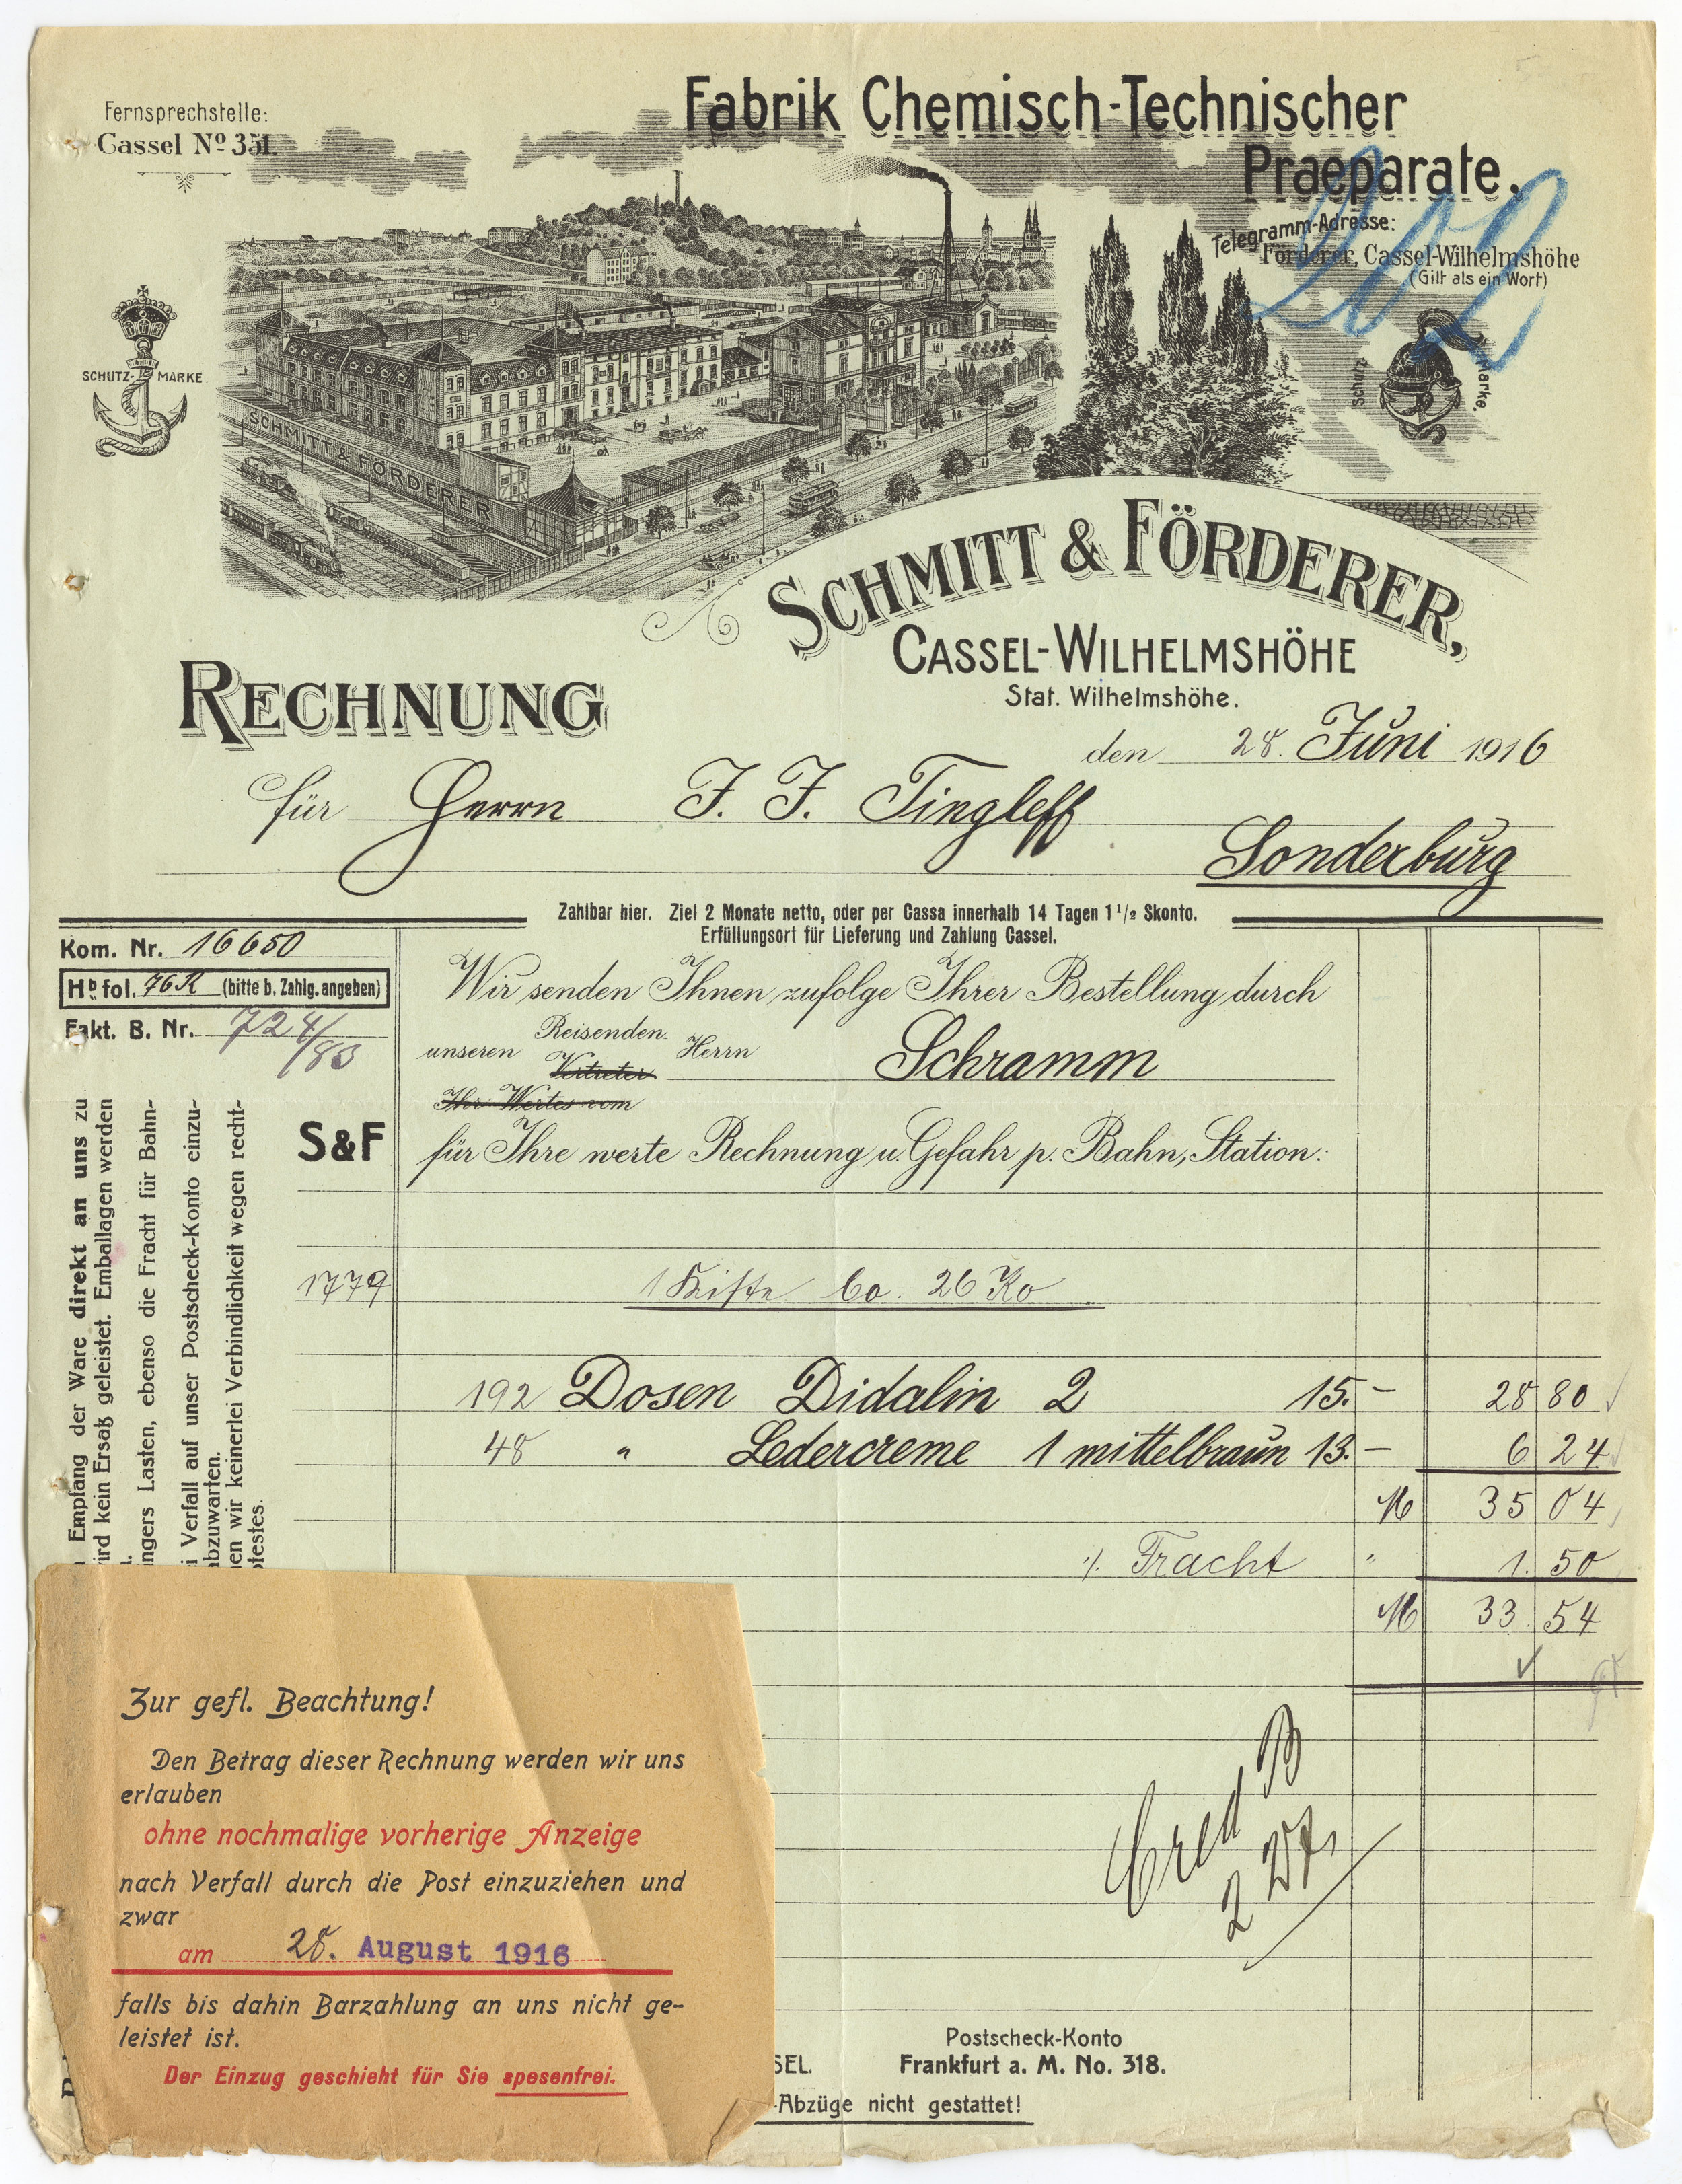 Fernsprechstelle:
Cassel Nº 351.
Fabrik Chemisch-Technischer
Praeparate.
202
Telegramm-Adresse:
Förderer, Cassel-Wilhelmshöhe
(Gilt als ein Wort)
SCHUTZ- MARKE
Schutz Marke.
SCHMITT & FÖRDERER
SCHMITT & FÖRDERER,
CASSEL-WILHELMSHÖHE
Stat. Wilhelmshöhe.
RECHNUNG
den 28. Juni 1916
für Herrn J. J. Tingleff
Sonderburg
Zahlbar hier. Ziel 2 Monate netto, oder per Cassa innerhalb 14 Tagen 1 1/2 Skonto.
Erfüllungsort für Lieferung und Zahlung Cassel.
Kom. Nr. 16650
Hb. fol. 76R (bitte b. Zahlg. angeben)
Fakt. B. Nr. 724/83
Wir senden Ihnen zufolge Ihrer Bestellung durch
unseren Reisenden Herrn Schramm
Vertreter
Ihr Wertes vom
S&F
für Ihre werte Rechnung u. Gefahr p. Bahn, Station:
Empfang der Ware direkt an uns zu
ird kein Ersaß geleistet. Emballagen werden
ngers Lasten, ebenso die Fracht für Bahn-
i Verfall auf unser Postscheck-Konto einzu-
abzuwarten.
en wir keinerlei Verbindlichkeit wegen recht-
otestes.
1779 1 Kiste Bo. 26 Ko
192 Dosen Didalin 2 15.- 28 80
48 " Ledercreme 1 mittelbraun 13.- 6 24
M 35 04
./. Fracht " 1. 50
M 33 54
Zur gefl. Beachtung!
Den Betrag dieser Rechnung werden wir uns
erlauben
ohne nochmalige vorherige Anzeige
nach Verfall durch die Post einzuziehen und
zwar
am 28. August 1916
falls bis dahin Barzahlung an uns nicht ge-
leistet ist.
Der Einzug geschieht für Sie spesenfrei.
SEL.
Postscheck-Konto
Frankfurt a. M. No. 318.
-Abzüge nicht gestattet!